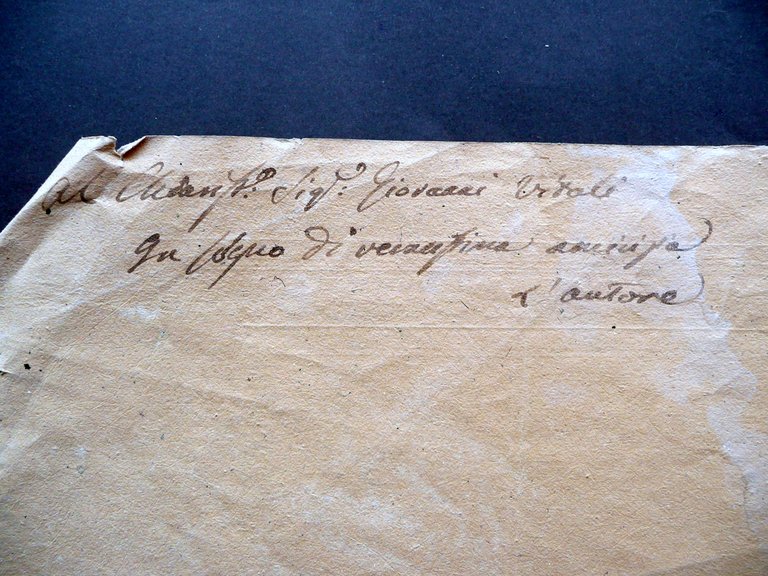 Al Sig.r Giovanni Vitali
In segno di verissima amicizia
L'autore